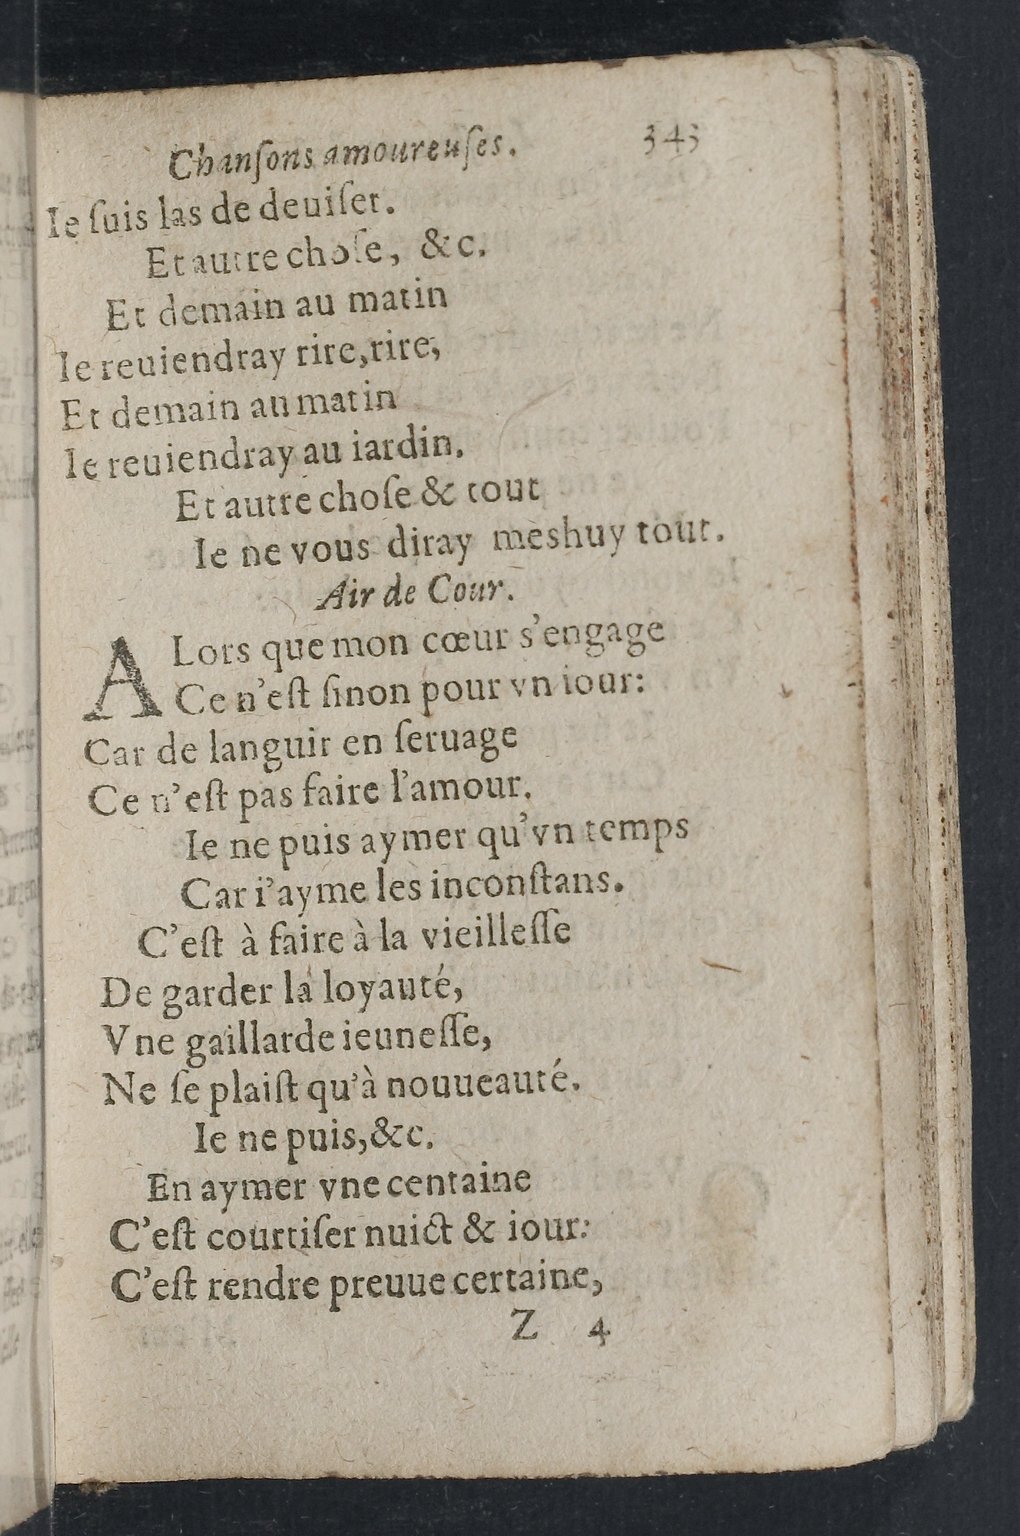 Chanſons amoureuſes. 343
Ie ſuis las de deuiſer.
Et autre choſe, &c.
Et demain au matin
Ie reuiendray rire, rire,
Et demain au matin
Ie reuiendray au iardin.
Et autre choſe & tout
Ie ne vous diray meshuy tout.
Air de Cour.
ALors que mon cœur s'engage
Ce n'eſt ſinon pour vn iour:
Car de languir en ſeruage
Ce n'eſt pas faire l'amour.
Ie ne puis aymer qu'vn temps
Car i'ayme les inconſtans.
C'eſt à faire à la vieilleſſe
De garder la loyauté,
Vne gaillarde ieuneſſe,
Ne ſe plaiſt qu'à nouueauté.
Ie ne puis, &c.
En aymer vne centaine
C'eſt courtiſer nuict & iour:
C'eſt rendre preuue certaine,
Z 4